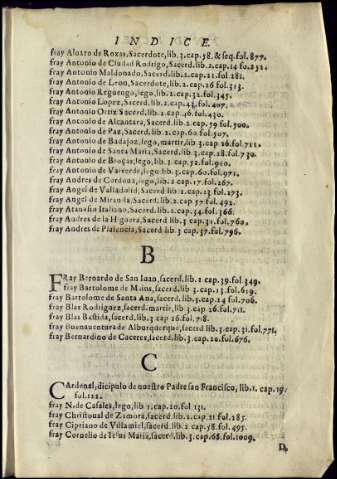 INDICE.
fray Aluaro de Roxas, Sacerdote, lib. 3. cap. 58. & seq. fol. 877.
fray Antonio de Ciudad Rodrigo, Sacerd. lib. 2. cap. 14 fo. 252.
fray Antonio Maldonado, Sacerd. lib. 2. cap. 21. fol. 281.
fray Antonio de Leon, Sacerdote, lib. 2. cap. 26 fol. 313.
fray Antonio Reguengo, lego, lib. 2. cap. 32. fol. 345.
fray Antonio Lopez, Sacerd. lib. 2. cap. 43. fol. 407.
fray Antonio Ortiz Sacerd. lib. 2. cap. 46. fol. 430.
fray Antonio de Alcantara, Sacerd. lib. 2. cap. 59. fol. 500.
fray Antonio de Paz, Sacerd. lib. 2. cap. 60. fol. 507.
fray Antonio de Badajoz, lego, martir, lib. 3. cap. 26. fol. 711.
fray Antonio de Santa Maria, Sacerd. lib. 3. cap. 28. fol. 730.
fray Antonio de Broças, lego, lib. 3. cap. 52. fol. 910.
fray Antonio de Valverde, lego, lib. 3. cap. 60. fol. 971.
fray Andres de Cordoua, lego, lib. 2. cap. 17. fol. 267.
fray Angel de Valladolid, Sacerd. lib. 2. cap. 13. fol. 273.
fray Angel de Miranda, Sacerd. lib. 2. cap. 57. fol. 492.
fray Atanasio Italiano, Sacerd. lib. 2. cap. 34. fol. 366.
fray Andres de la Higuera, Sacerd. lib. 3. cap. 31. fol. 760.
fray Andres de Plasencia, Sacerd. lib. 3. cap. 37. fol. 796.
B
FRay Bernardo de San Ioan, sacerd. lib. 2. cap. 39. fol. 349.
fray Bartolome de Mains, sacerd. lib. 3. cap. 13. fol. 619.
fray Bartolome de Santa Ana, sacerd. lib. 3. cap. 14 fol. 706.
fray Blas Rodriguez, sacerd. martir, lib. 3. cap. 26. fol. 711.
fray Blas Bestida, sacerd. lib. 3. cap. 26. fol. 718.
fray Buenauentura de Alburquerque, sacerd. lib. 3. cap. 31. fol. 771.
fray Bernardino de Caceres, lego, lib. 3. cap. 20. fol. 676.
C
CArdenal, dicipulo de nuestro Padre san Francisco, lib. 1. cap. 19.
fol. 122.
fray N. de Casales, lego, lib. 1. cap. 20. fol. 131.
fray Christoual de Zamora, sacerd. lib. 2. cap. 21. fol. 285.
fray Cipriano de Villamiel, sacerd. lib. 2. cap. 58. fol. 495.
fray Cornelio de Iesus Maria, sacerd. lib. 3. cap. 68. fol. 1009.